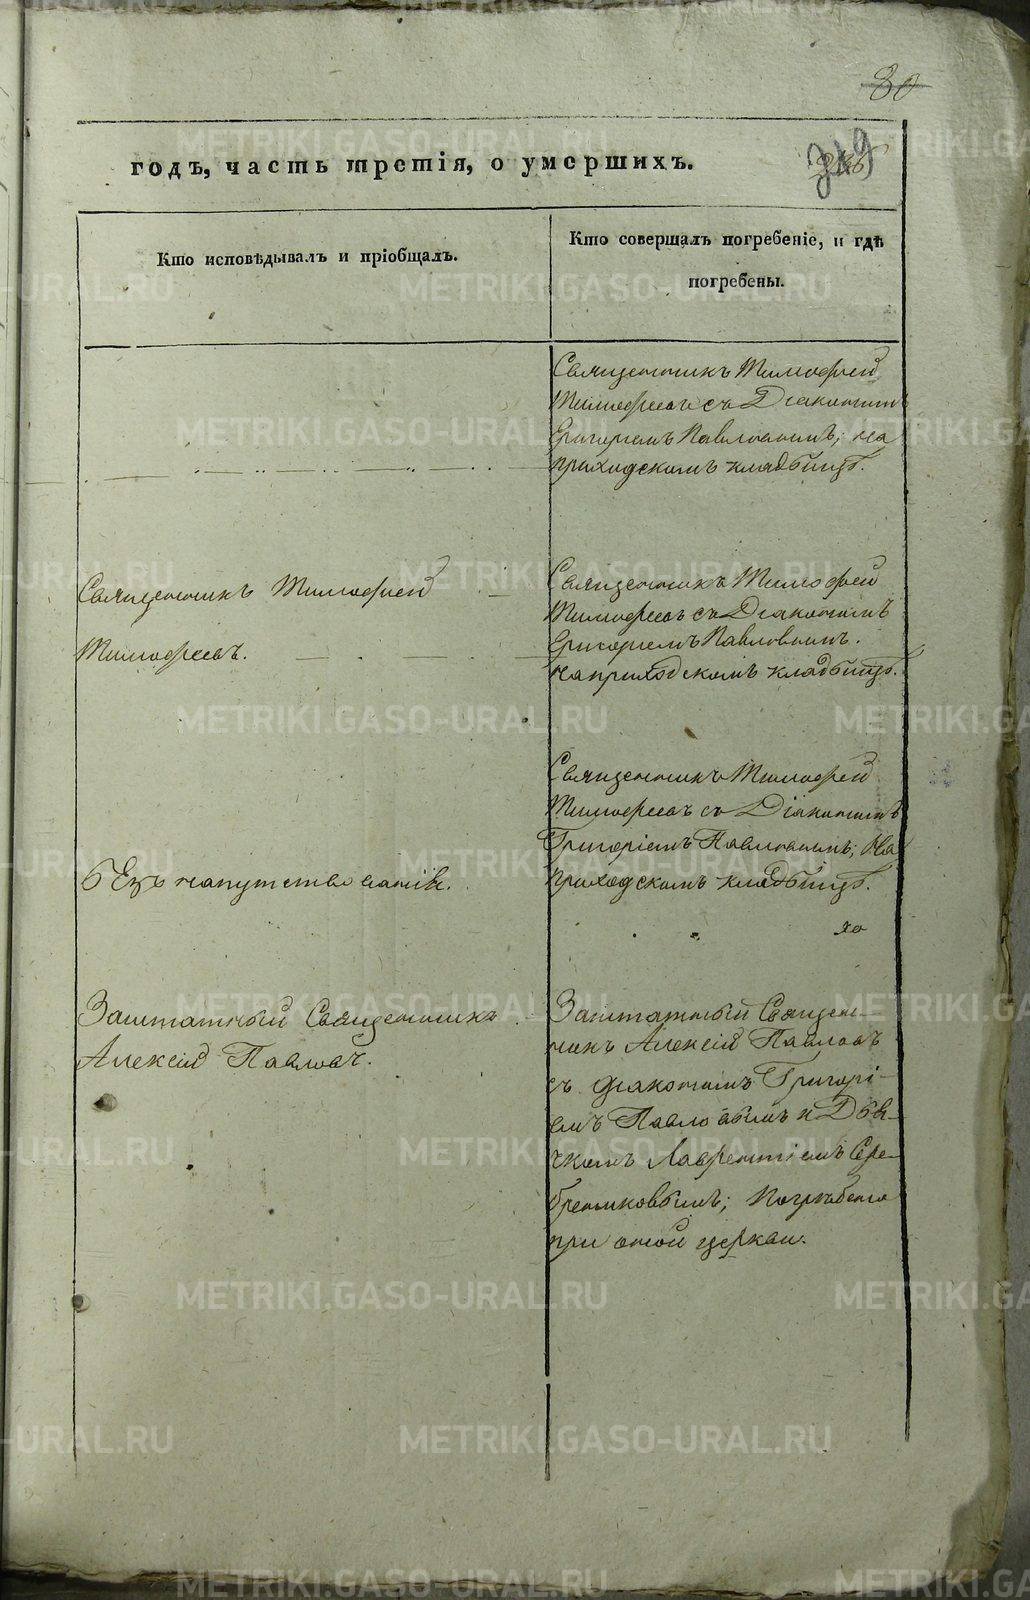 80
349
годъ, часть третія, о умершихъ.
Кто исповѣдывалъ и пріобщалъ.
Кто совершалъ погребеніе, и гдѣ
погребены.
Священникъ Тимофей
Тимофеевъ съ Діакономъ
Григоріемъ Павловымъ; на
приходскомъ кладбищѣ.
Священникъ Тимофей
Тимофеевъ.
Священникъ Тимофей
Тимофеевъ съ Діакономъ
Григоріемъ Павловымъ.
на приходскомъ кладбищѣ.
безъ напутствованія.
Священникъ Тимофей
Тимофеевъ съ Діакономъ
Григоріемъ Павловымъ; На
приходскомъ кладбищѣ.
Заштатный Священникъ
Алексій Павловъ.
Заштатный Священ-
никъ Алексій Павловъ
съ діакономъ Григорі-
емъ Павловымъ и Дья-
чкомъ Лаврентіемъ Сере-
бренниковымъ; Погребенъ
при оной церкви.
METRIKI.GASO-URAL.RU